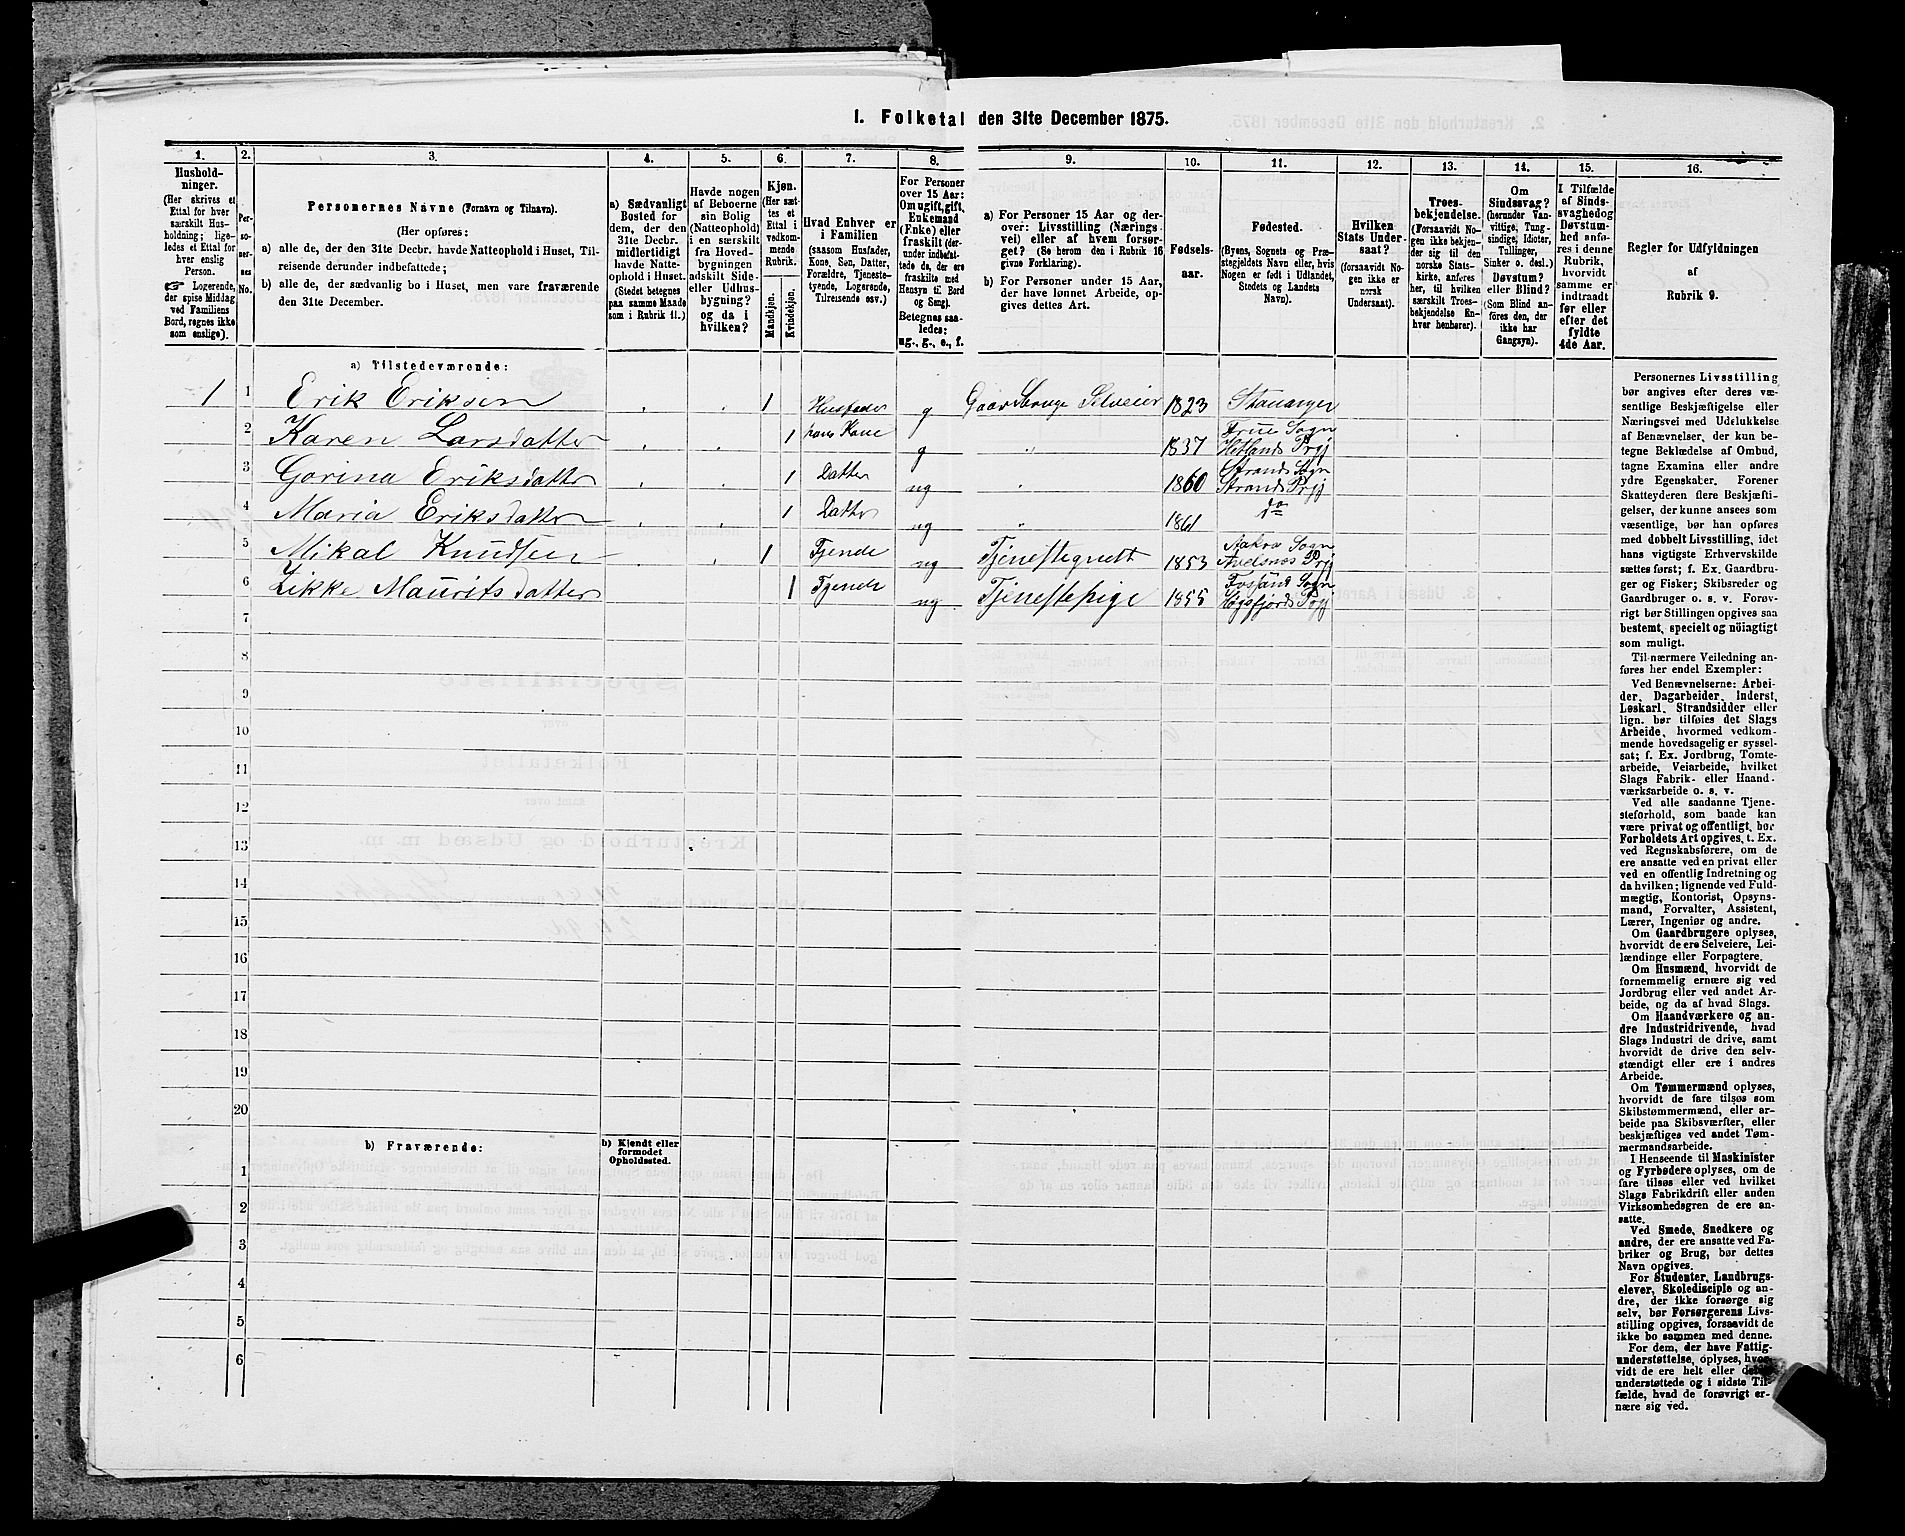 1. Folketal den 31te December 1875.
1. 2. 3. 4. 5. 6. 7. 8. 9. 10. 11. 12. 13. 14. 15. 16.
Hushold-
ninger.
(Her skrives et
Ettal for hver
særskilt Hus-
holdning; lige-
ledes et Ettal for
hver enslig
Person.
☞ Logerende,
der spise Middag
ved Familiens
Bord, regnes ikke
som enslige).
Per-
so-
ner-
nes
No.
Personernes Navne (Fornavn og Tilnavn).
(Her opføres:
a) alle de, der den 31te Decbr. havde Natteophold i Huset, Til-
reisende derunder indbefattede;
b) alle de, der sædvanlig bo i Huset, men vare fraværende
den 31te December.
a) Sædvanligt
Bosted for
dem, der den
31te Decbr.
midlertidigt
havde Natte-
ophold i Huset.
(Stedet betegnes
paa samme Maade
som i Rubrik 11.)
Havde nogen
af Beboerne
sin Bolig
(Natteophold)
i en særskilt
fra Hoved-
bygningen
adskilt Side-
eller Udhus-
bygning?
og da i
hvilken?
Kjøn.
(Her sæt-
tes et
Ettal i
vedkom-
mende
Rubrik.
Mandkjøn.
Kvindekjøn.
Hvad Enhver er
i Familien
(saasom Husfader,
Kone, Søn, Datter,
Forældre, Tjeneste-
tyende, Logerende,
Tilreisende osv.)
For Personer
over 15 Aar:
Om ugift, gift,
Enkemand
(Enke) eller
fraskilt (der-
under indbefat-
tede de, der ere
fraskilte med
Hensyn til Bord
og Seng).
Betegnes saa-
ledes:
ug., g., e., f.
a) For Personer 15 Aar og der-
over: Livsstilling (Nærings-
vei) eller af hvem forsør-
get? (Se herom den i Rubrik 16
givne Forklaring).
b) For Personer under 15 Aar,
der have lønnet Arbeide, op-
gives dettes Art.
Fødsels-
aar.
Fødested.
(Byens, Sognets og Præ-
stegjeldets Navn eller, hvis
Nogen er født i Udlandet,
Stedets og Landets
Navn).
Hvilken
Stats Under-
saat?
(forsaavidt No-
gen ikke er
norsk
Undersaat).
Troes-
bekjendelse.
(Forsaavidt No-
gen ikke bekjen-
der sig til den
norske Stats-
kirke, anføres
her, til hvilken
særskilt Troes-
bekjendelse En-
hver henhører).
Om
Sindssvag?
(herunder Van-
vittige, Tung-
sindige, Idioter,
Tullinger,
Sinker o. desl.)
Døvstum?
eller Blind?
(Som Blind an-
føres den, der
ikke har
Gangsyn).
I Tilfælde
af Sinds-
svaghed og
Døvstum-
hed anfø-
res i denne
Rubrik,
hvorvidt
samme er
indtraadt
før eller
efter det
fyldte
4de Aar.
Regler for Udfyldningen
af
Rubrik 9.
a) Tilstedeværende:
1 1 Erik Eriksen 1 Husfader g Gaardbruge Selveier 1823 Stavanger
2 Karen Larsdatter 1 hans Kone g " 1837 Frue Sogn
Hetlands Prgj
3 Gorina Eriksdatter 1 Datter ug " 1860 Strands Sogn
Strands Prgj
4 Maria Eriksdatter 1 Datter ug " 1861 do
5 Mikal Knudsen 1 Tjende ug Tjenestegutt 1853 Aakra Sogn
Avelsnæs Prgj
6 Zikke Mauritsdatter 1 Tjende ug Tjenestepige 1855 Fossand Sogn
Høgsfjords Prgj
7
8
9
10
11
12
13
14
15
16
17
18
19
20
b) Fraværende:
b) Kjendt eller
formodet
Opholdssted.
1
2
3
4
5
6
Personernes Livsstilling
bør angives efter deres væ-
sentlige Beskjæftigelse eller
Næringsvei med Udelukkelse
af Benævnelser, der kun be-
tegne Beklædelse af Ombud,
tagne Examina eller andre
ydre Egenskaber. Forener
Skatteyderen flere Beskjæfti-
gelser, der kunne ansees som
væsentlige, bør han opføres
med dobbelt Livsstilling, idet
hans vigtigste Erhvervskilde
sættes først; f. Ex. Gaardbru-
ger og Fisker; Skibsreder og
Gaardbruger o. s. v. Forøv-
rigt bør Stillingen opgives saa
bestemt, specielt og nöiagtigt
som muligt.
Til nærmere Veiledning an-
føres her endel Exempler:
Ved Benævnelserne: Arbei-
der, Dagarbeider, Inderst,
Løskarl, Strandsidder eller
lign. bør tilføies det Slags
Arbeide, hvormed vedkom-
mende hovedsagelig er syssel-
sat; f. Ex. Jordbrug, Tomte-
arbeide, Veiarbeide, hvilket
Slags Fabrik- eller Haand-
værksarbeide o. s. v.
Ved alle saadanne Tjene-
steforhold, som baade kan
være privat og offentligt, bør
Forholdets Art opgives, t. Ex.
ved Regnskabsførere, om de
ere ansatte ved en privat eller
ved en offentlig Indretning og
da hvilken; lignende ved Fuld-
mægtig, Kontorist, Opsyns-
mand, Forvalter, Assistent,
Lærer, Ingeniør og andre.
Om Gaardbrugere oplyses,
hvorvidt de ere Selveiere, Lei-
lændinge eller Forpagtere.
Om Husmænd, hvorvidt de
fornemmelig ernære sig ved
Jordbrug eller ved andet Ar-
beide, og da af hvad Slags.
Om Haandværkere og an-
dre Industridrivende, hvad
Slags Industri de drive, samt
hvorvidt de drive den selv-
stændigt eller ere i andres
Arbeide.
Om Tømmermænd oplyses,
hvorvidt de fare tilsøs som
Skibstømmermænd, eller ar-
beide paa Skibsværfter, eller
beskjæftiges ved andet Tøm-
mermandsarbeide.
I Henseende til Maskinister
og Fyrbødere oplyses, om de
fare tilsøs eller ved hvilket
Slags Fabrikdrift eller anden
Virksomhedsgren de ere an-
satte.
Ved Smede, Snedkere og
andre, der ere ansatte ved Fa-
briker og Brug, bør dettes
Navn opgives.
For Studenter, Landbrugs-
elever, Skoledisciple og an-
dre, der ikke forsørge sig
selv, bør Forsørgerens Livs-
stilling opgives, forsaavidt de
ikke bo sammen med denne.
For dem, der have Fattig-
understøttelse, oplyses, hvor-
vidt de ere helt eller delvis
understøttede og i sidste Til-
fælde, hvad de forøvrigt er-
nære sig ved.